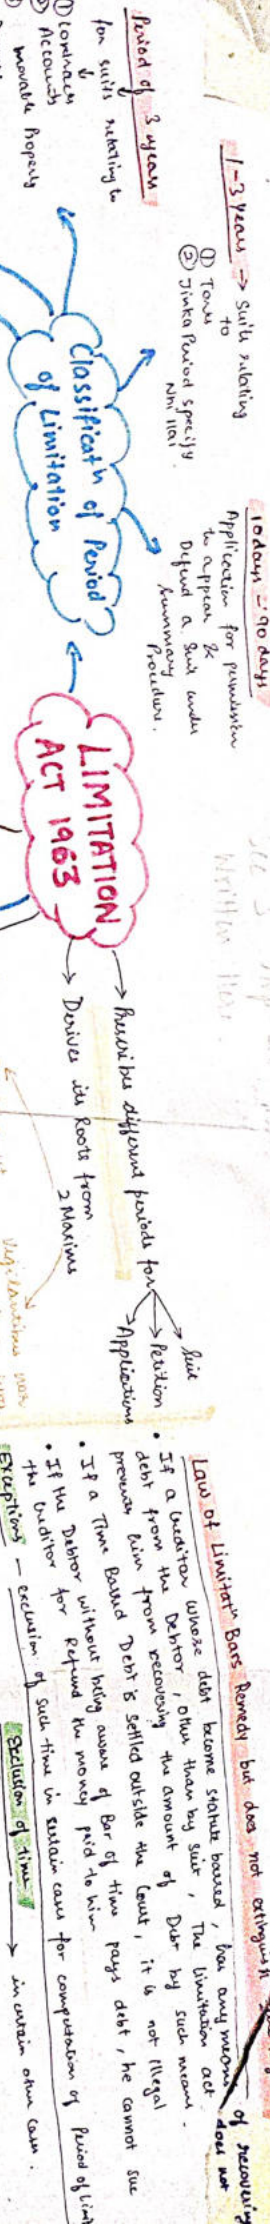 Period of 3 years
for suits relating to
① Contracts
② Accounts
movable Property
1-3 years → Suits relating
to
① Torts
② Jinka Period specify
Nhi Hai.
10 days - 90 days
Application for permission
to appear &
Defend a Suit under
Summary
Procedure.
Classificatn of Period
of Limitation
LIMITATION
ACT 1963
→ Prescribes different periods for
Suit
Petition
Applications
→ Derives its Roots from
2 Maxims
Vigilantibus non
Law of Limitatn Bars Remedy but does not extinguish
• If a Creditor whose debt become statute barred, has any means of recovering
debt from the Debtor, other than by suit, The limitation act does not
prevents him from recovering the amount of Debt by such means.
• If a Time Barred Debt is settled outside the Court, it is not illegal
• If the Debtor without being aware of Bar of time pays debt, he cannot sue
the Creditor for Refund the money paid to him
Exceptions - exclusion of such time in certain cases for computation of Period of Limit
Exclusion of time → in certain other cases.